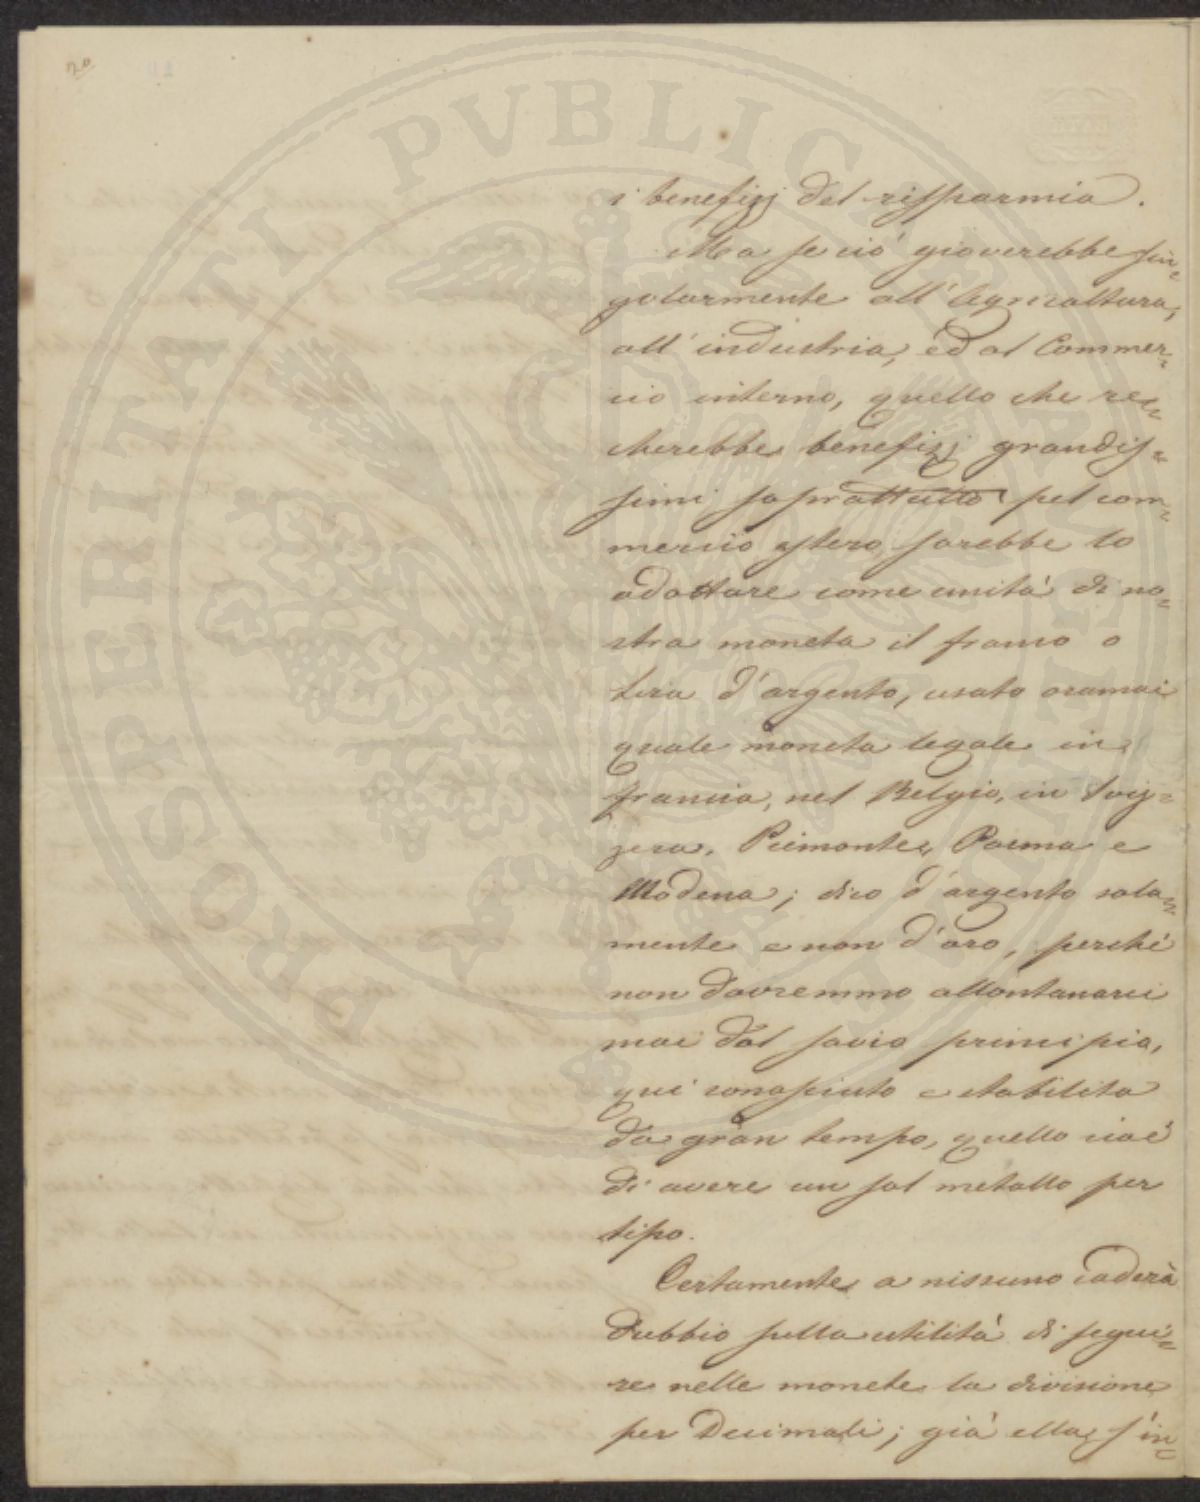 20
i benefizj del risparmio.
Ma se ciò gioverebbe sin=
golarmente all'Agricoltura,
all'industria, ed al Commer=
cio interno, quello che re=
cherebbe benefizj grandis=
simi soprattutto pel com=
mercio estero sarebbe lo
adottare come unità di no=
stra moneta il franco o
lira d'argento, usato oramai
quale moneta legale in
francia, nel Belgio, in Sviz=
zera, Piemonte, Parma e
Modena; dico d'argento sola=
mente e non d'oro, perchè
non dovremmo allontanarci
mai dal savio principio,
qui conosciuto e stabilito
da gran tempo, quello cioè
di avere un sol metallo per
tipo.
Certamente a nissuno caderà
dubbio sulla utilità di segui=
re nelle monete la divisione
per Decimali; già ella s'in=
PROSPERITATI PVBLICAE